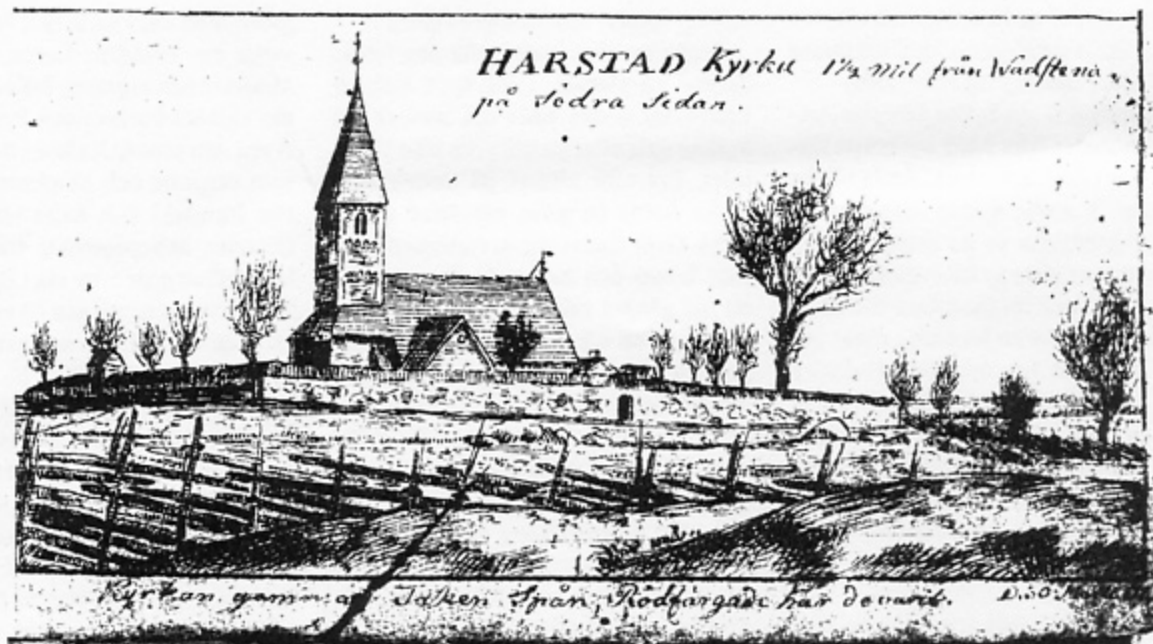 HARSTAD Kyrka 1½ Mil från Wadstena
på Södra Sidan.
Kyrkan gammal Taken Spån, Rödfärgade har de varit.